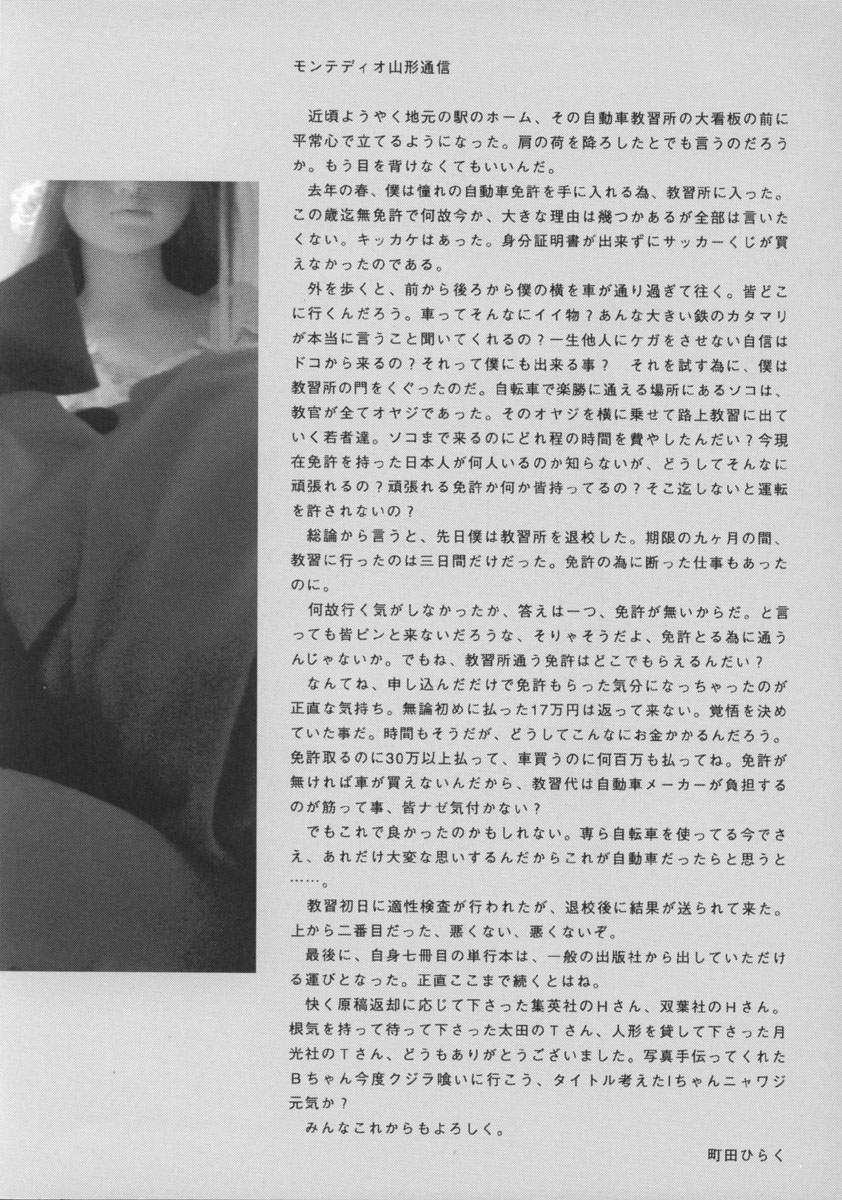 モンテディオ山形通信
近頃ようやく地元の駅のホーム、その自動車教習所の大看板の前に
平常心で立てるようになった。肩の荷を降ろしたとでも言うのだろう
か。もう目を背けなくてもいいんだ。
去年の春、僕は憧れの自動車免許を手に入れる為、教習所に入った。
この歳迄無免許で何故今か、大きな理由は幾つかあるが全部は言いた
くない。キッカケはあった。身分証明書が出来ずにサッカーくじが買
えなかったのである。
外を歩くと、前から後ろから僕の横を車が通り過ぎて往く。皆どこ
に行くんだろう。車ってそんなにイイ物？あんな大きい鉄のカタマリ
が本当に言うこと聞いてくれるの？一生他人にケガをさせない自信は
ドコから来るの？それって僕にも出来る事？　それを試す為に、僕は
教習所の門をくぐったのだ。自転車で楽勝に通える場所にあるソコは、
教官が全てオヤジであった。そのオヤジを横に乗せて路上教習に出て
いく若者達。ソコまで来るのにどれ程の時間を費やしたんだい？今現
在免許を持った日本人が何人いるのか知らないが、どうしてそんなに
頑張れるの？頑張れる免許か何か皆持ってるの？そこ迄しないと運転
を許されないの？
総論から言うと、先日僕は教習所を退校した。期限の九ヶ月の間、
教習に行ったのは三日間だけだった。免許の為に断った仕事もあった
のに。
何故行く気がしなかったか、答えは一つ、免許が無いからだ。と言
っても皆ピンと来ないだろうな、そりゃそうだよ、免許とる為に通う
んじゃないか。でもね、教習所通う免許はどこでもらえるんだい？
なんてね、申し込んだだけで免許もらった気分になっちゃったのが
正直な気持ち。無論初めに払った17万円は返って来ない。覚悟を決め
ていた事だ。時間もそうだが、どうしてこんなにお金かかるんだろう。
免許取るのに30万以上払って、車買うのに何百万も払ってね。免許が
無ければ車が買えないんだから、教習代は自動車メーカーが負担する
のが筋って事、皆ナゼ気付かない？
でもこれで良かったのかもしれない。専ら自転車を使ってる今でさ
え、あれだけ大変な思いするんだからこれが自動車だったらと思うと
……。
教習初日に適性検査が行われたが、退校後に結果が送られて来た。
上から二番目だった、悪くない、悪くないぞ。
最後に、自身七冊目の単行本は、一般の出版社から出していただけ
る運びとなった。正直ここまで続くとはね。
快く原稿返却に応じて下さった集英社のＨさん、双葉社のＨさん。
根気を持って待って下さった太田のＴさん、人形を貸して下さった月
光社のＴさん、どうもありがとうございました。写真手伝ってくれた
Ｂちゃん今度クジラ喰いに行こう、タイトル考えたIちゃんニャワジ
元気か？
みんなこれからもよろしく。
町田ひらく